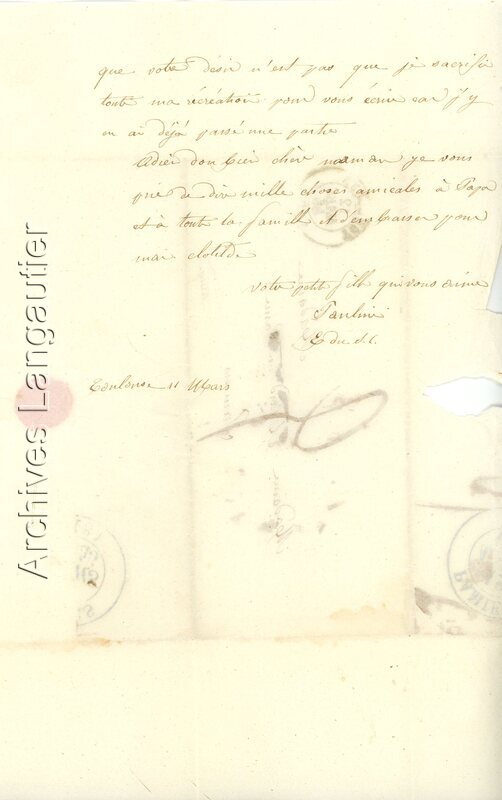 que votre désir n'est pas que je sacrifie
toute ma récréation pour vous écrire car j'y
en ai déjà passé une partie
Adieu donc bien chère maman je vous
prie de dire mille choses amicales à Papa
et à toute la famille et d'embrasser pour
moi clotilde
votre petite fille qui vous aime
Pauline
E du S. C.
Toulouse 11 Mars
Archives Langautier